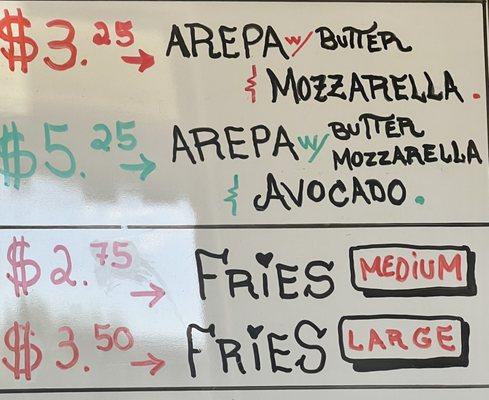 $3.25 → AREPA w/ BUTTER
& MOZZARELLA.
$5.25 → AREPA w/ BUTTER
MOZZARELLA
& AVOCADO.
$2.75 → FRiES MEDiUM
$3.50 → FRiES LARGE